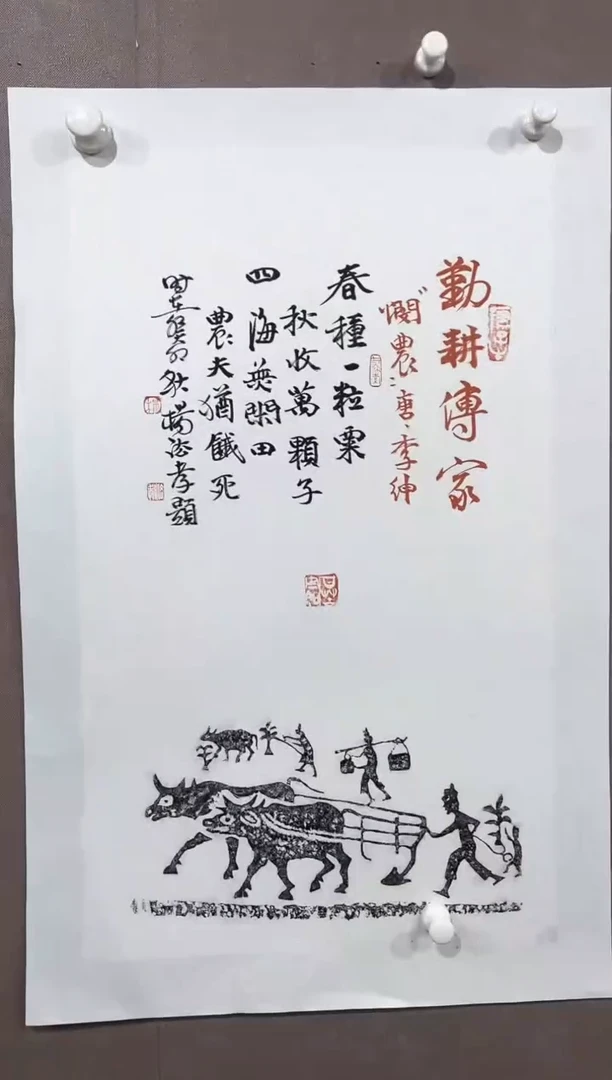 勤耕傳家
"憫農"唐、李紳
春種一粒粟
秋收萬顆子
四海無閑田
農夫猶餓死
時在癸卯秋楊孝題